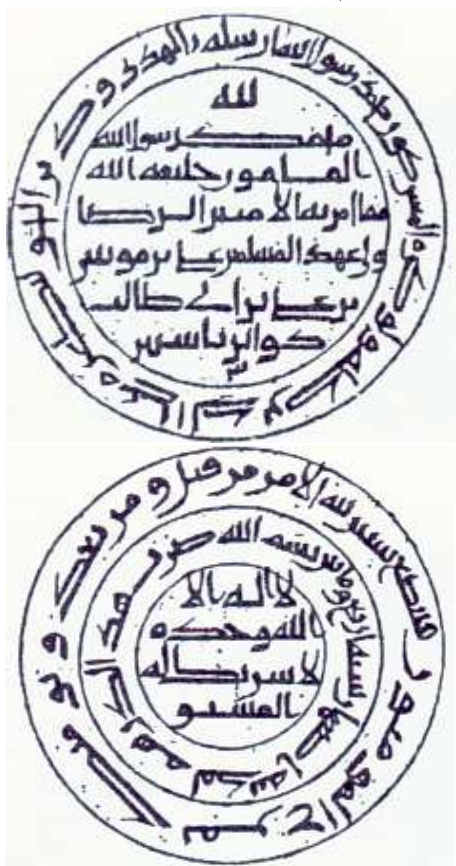 محمد رسول الله ارسله بالهدى ودين الحق ليظهره على الدين كله ولو كره المشركون
لله
محمد رسول الله
المامون خليفة الله
مما امر به الامير الرضا
ولي عهد المسلمين علي بن موسى
بن علي بن ابي طالب
ذو الرياستين
لله الامر من قبل ومن بعد ويومئذ يفرح المؤمنون بنصر الله
بسم الله ضرب هذا الدرهم بمدينة اصبهان سنة اربع ومائتين
لا اله الا
الله وحده
لا شريك له
المشرق